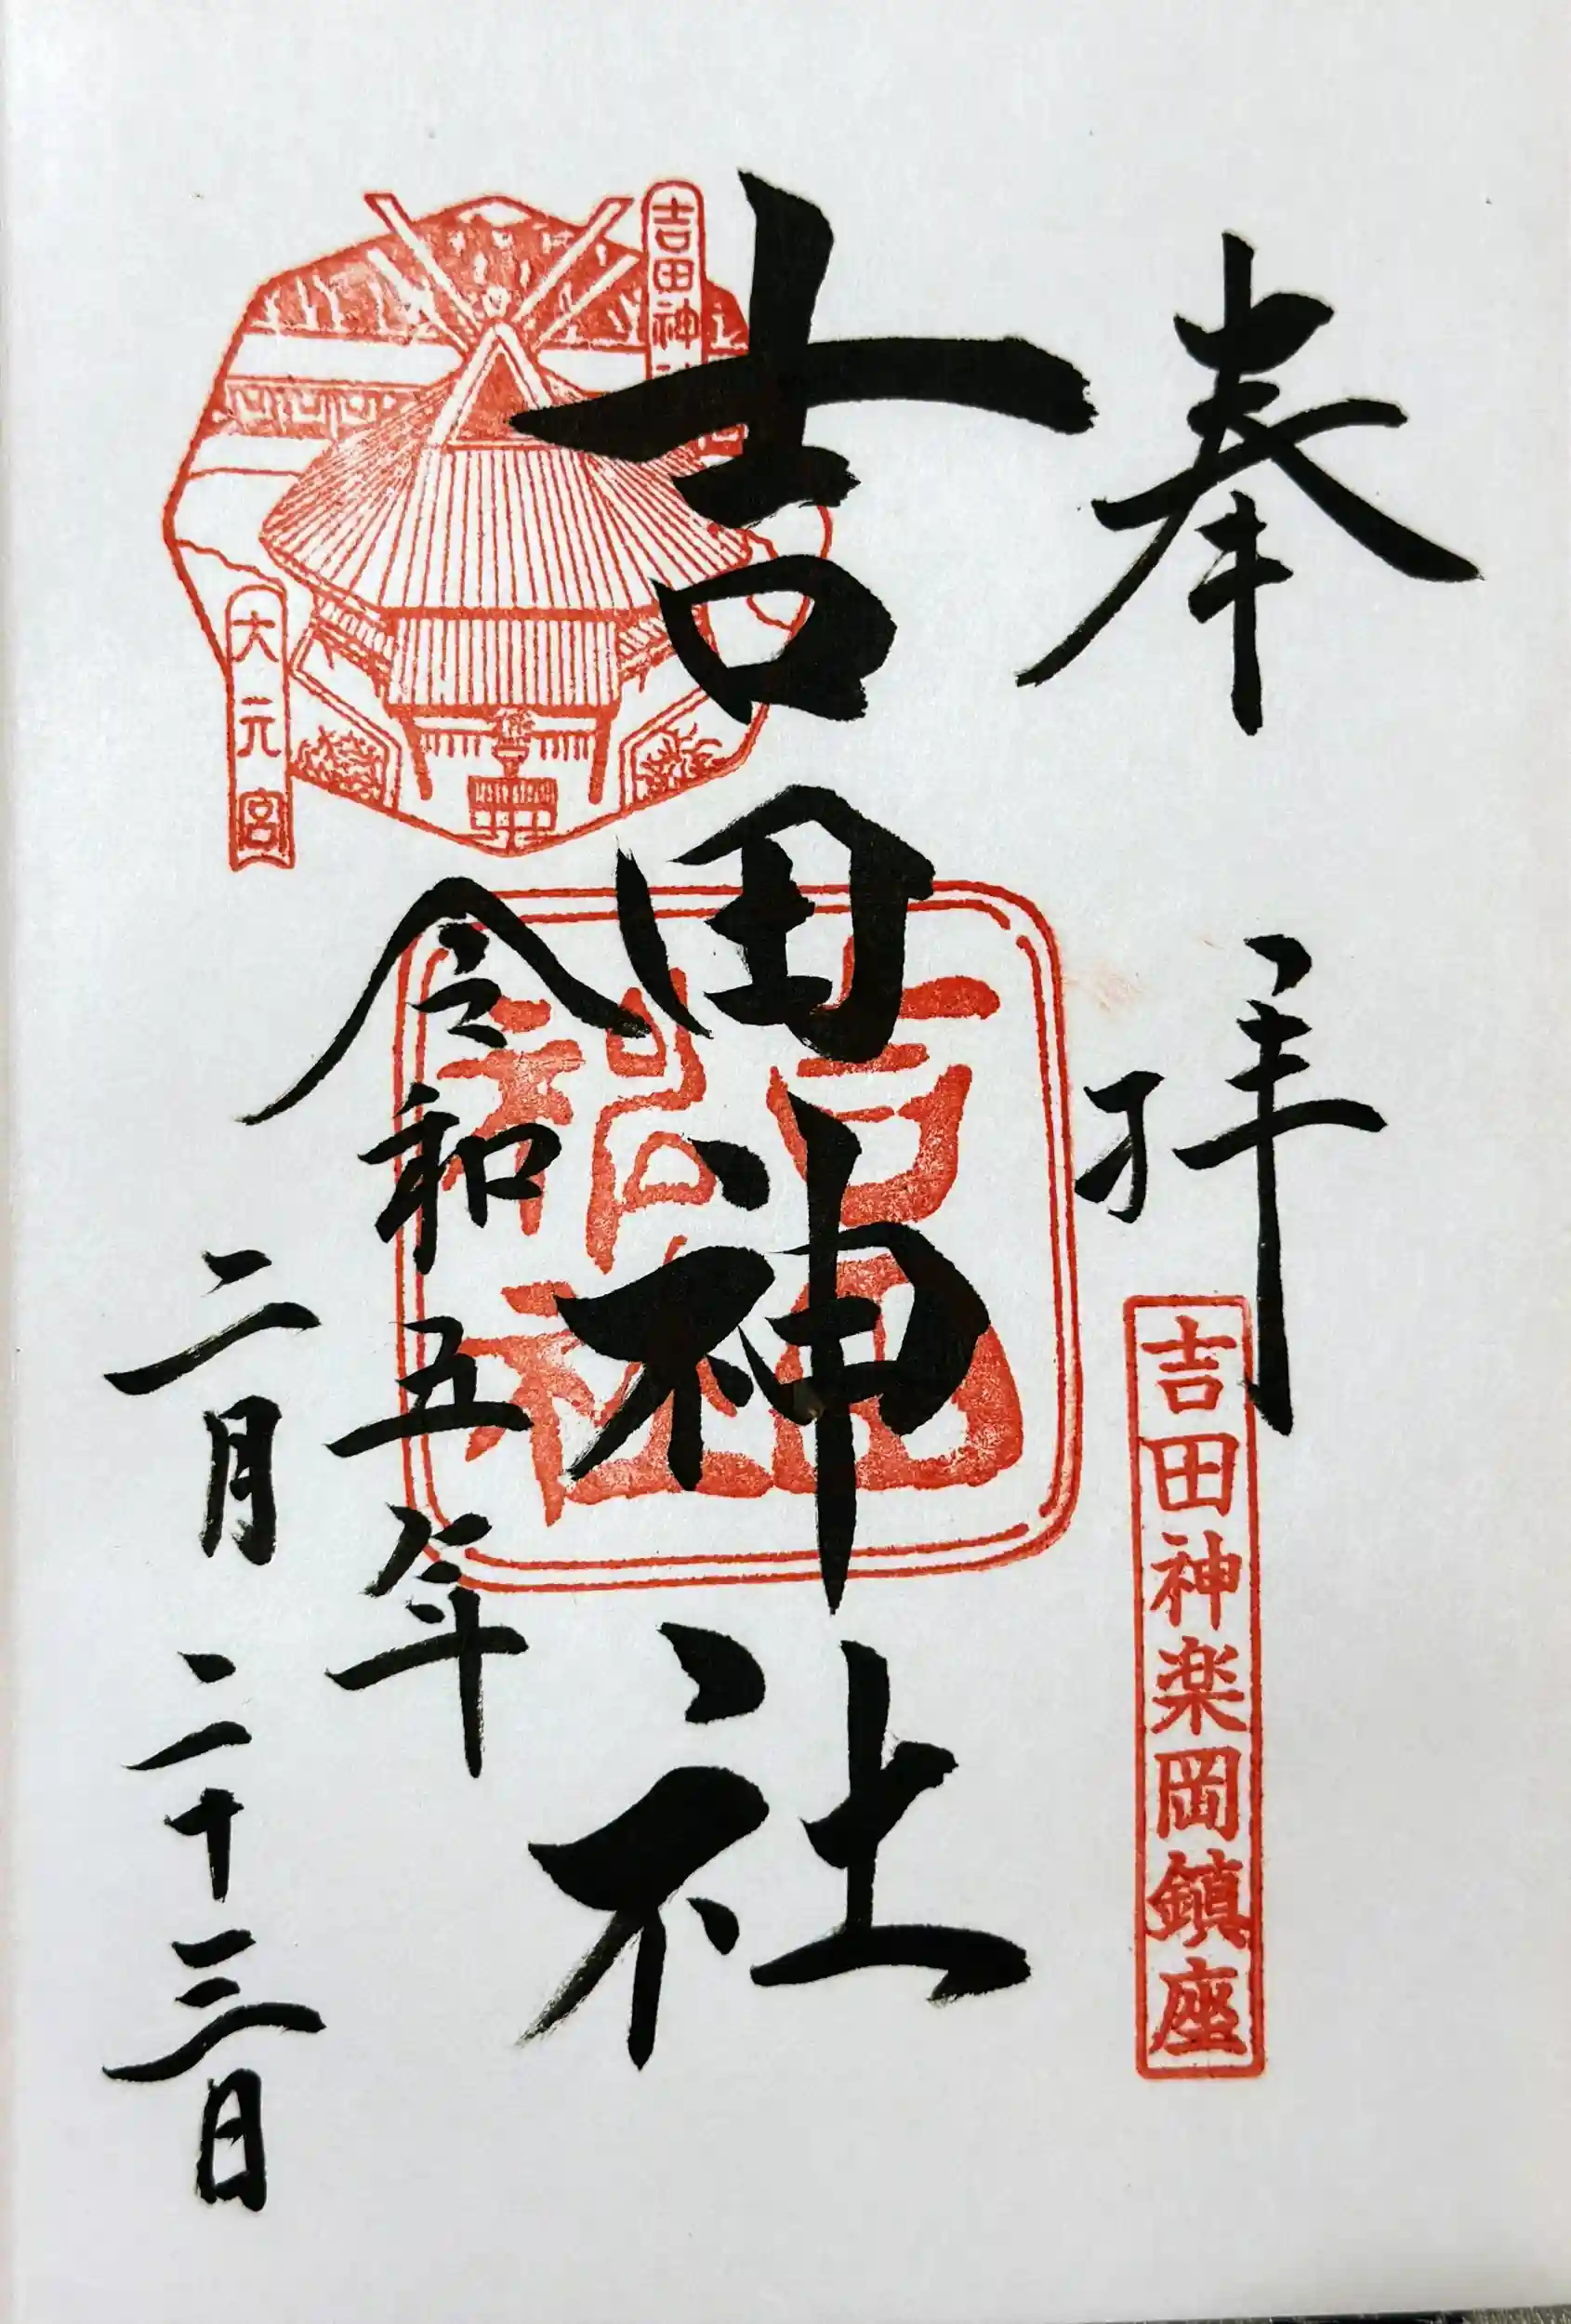 奉拝
吉田神楽岡鎮座
吉田神社
吉田神社
大元宮
令和五年
二月二十三日